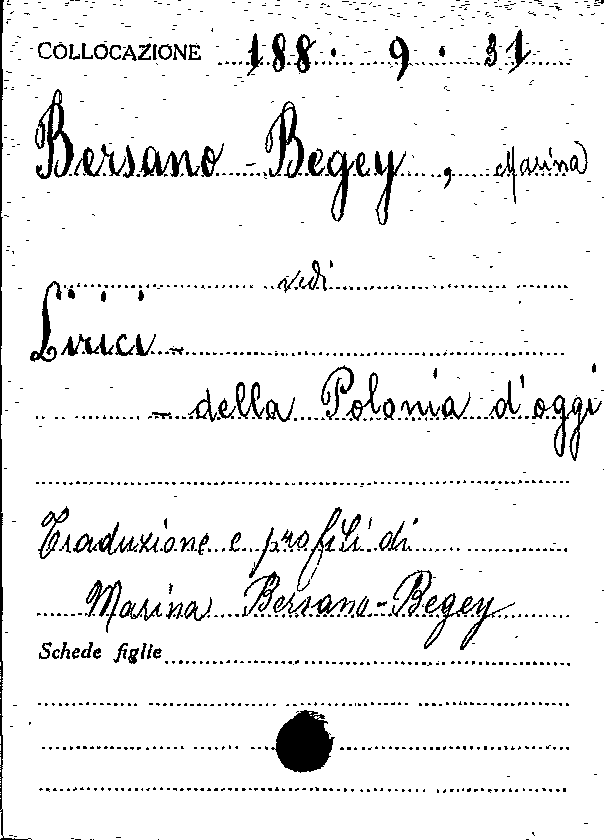 COLLOCAZIONE 188. 9. 31
Bersano-Begey, Marina
vedi
Lirici-
- della Polonia d'oggi
Traduzione e profili di
Marina Bersano-Begey
Schede figlie